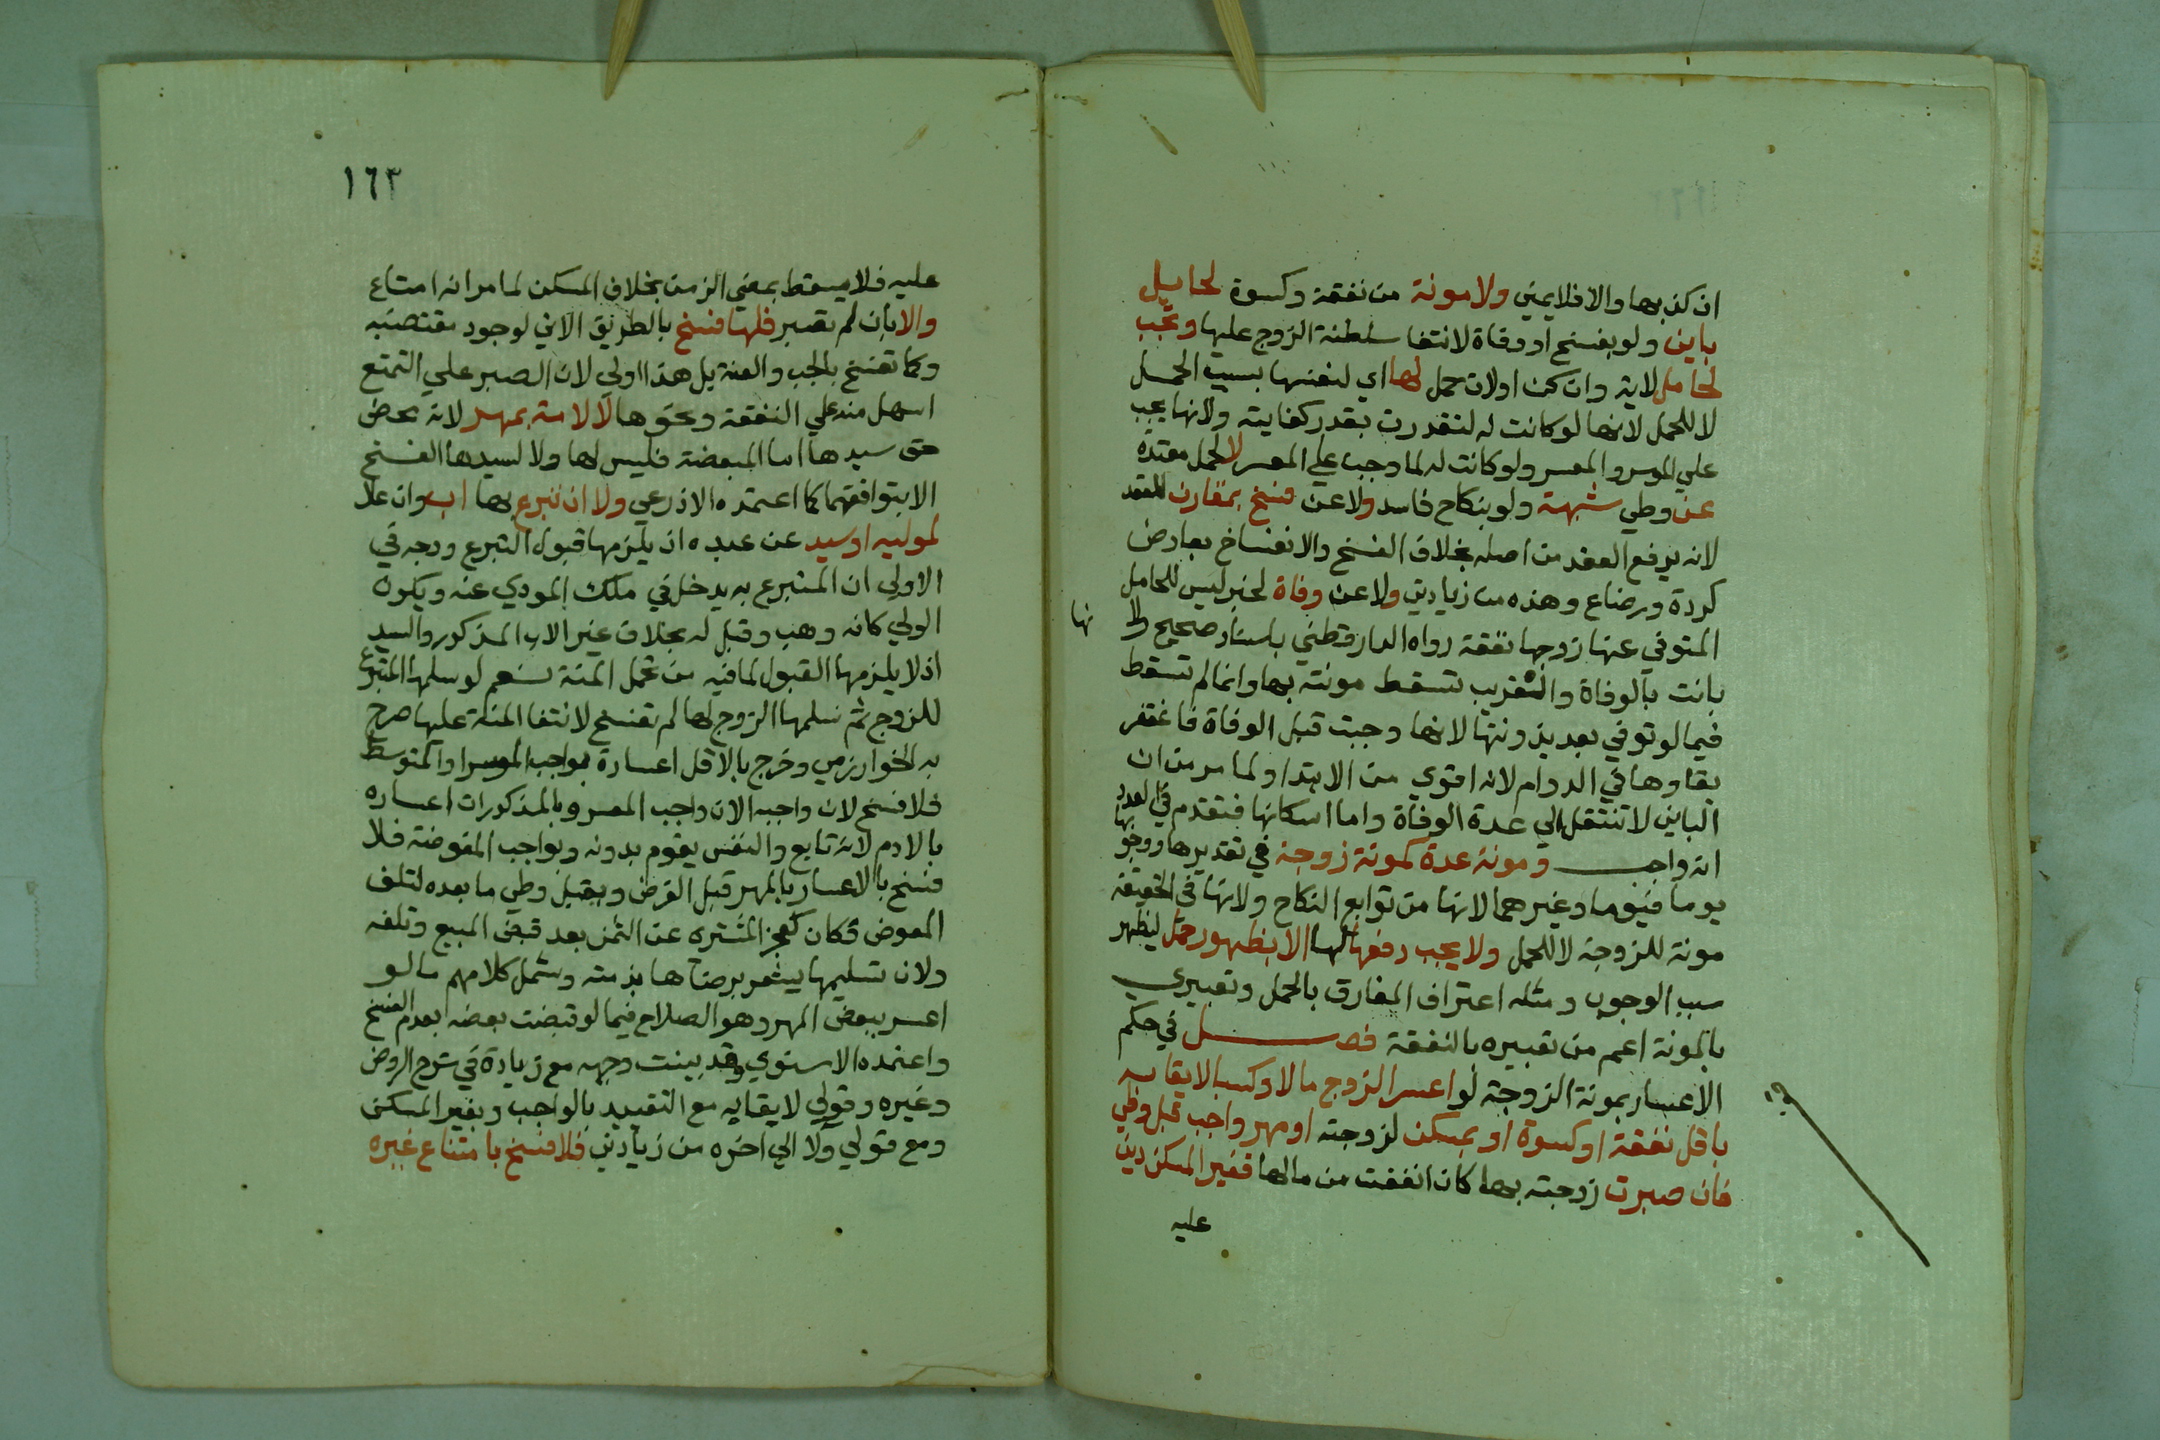 ان كذبها والا فلا يمين ولا مونة من نفقة وكسوة لحايل
باين ولو بفسخ او وفاة لانتفا سلطنة الزوج عليها وتجب
لحامل لاية وان كن اولات حمل لها اي لنفسها بسبب الحمل
لا للحمل لانها لو كانت له لتقدرت بقدر كفايته ولانها تجب
علي الموسر والمعسر ولو كانت له لما وجبت علي المعسر لا لحمل معتدة
عن وطي شبهة ولو بنكاح فاسد ولا عن فسخ بمقارن للعقد
لانه يرفع العقد من اصله بخلاف الفسخ والانفساخ بعارض
كردة ورضاع وهذه من زيادتي ولا عن وفاة لخبر ليس للحامل
المتوفي عنها زوجها نفقة رواه الدارقطني باسناد صحيح ولا نها
بانت بالوفاة والقريب تسقط مونته بها وانما لم تسقط
فيما لو توفي بعد بينونتها لانها وجبت قبل الوفاة فاغتفر
بقاوها في الدوام لانه اقوي من الابتدا ولما مر من ان
الباين لا تنتقل الي عدة الوفاة واما اسكانها فتقدم في العدد
انه واجب ومونة عدة كمونة زوجة في تقديرها ووجوبها
يوما فيوما وغيرهما لانها من توابع النكاح ولانها في الحقيقة
مونة للزوجة لا للحمل ولا يجب دفعها لها الا بظهور حمل ليظهر
سبب الوجوب ومثله اعتراف المفارق بالحمل وتعبيري
بالمونة اعم من تعبيره بالنفقة فصل في حكم
الاعسار بمونة الزوجة لو اعسر الزوج مالا وكسبا لايقا به
باقل نفقة او كسوة او بمسكن لزوجته او مهر واجب قبل وطي
فان صبرت زوجته بها كان انفقت من مالها فغير المسكن دين
عليه
١٦٣
عليه فلا يسقط بمضي الزمن بخلاف المسكن لما مر انه امتاع
والا بان لم تصبر فلها فسخ بالطريق الاتي لوجود مقتضيه
وكما تفسخ بالجب والعنة بل هذا اولي لان الصبر علي التمتع
اسهل منه علي النفقة ونحوها لا لامة بمهر لانه محض
حق سيدها اما المبعضة فليس لها ولا لسيدها الفسخ
الا بتوافقهما كما اعتمده الاذرعي ولا ان تبرع بها اب وان علا
لموليه او سيد عن عبده اذ يلزمها قبول التبرع ووجهه في
الاولي ان المتبرع به يدخل في ملك المودي عنه ويكون
الولي كانه وهب وقبل له بخلاف غير الاب المذكور والسيد
اذ لا يلزمها القبول لما فيه من تحمل المنة نعم لو سلمها المتبرع
للزوج ثم سلمها الزوج لها لم تفسخ لانتفا المنة عليها صرح
به الخوارزمي وخرج بالاقل اعساره بواجب الموسر او المتوسط
فلا فسخ لان واجبه الان واجب المعسر وبالمذكورات اعساره
بالادم لانه تابع والنفس يقوم بدونه وبواجب المفوضة فلا
فسخ بالاعسار بالمهر قبل الفرض وبقبل وطي ما بعده لتلف
المعوض فكان كعجز المشتري عن الثمن بعد قبض المبيع وتلفه
ولان تسليمها يشعر برضاها بذمته وشمل كلامهم ما لو
اعسر ببعض المهر وهو الصلاح فيما لو قبضت بعضه بعدم الفسخ
واعتمده الاسنوي وقد بينت وجهه مع زيادة في شرح الروض
وغيره وقولي لايقا به مع التقييد بالواجب وبغير المسكن
ومع قولي ولا الي اخره من زيادتي فلا فسخ بامتناع غيره